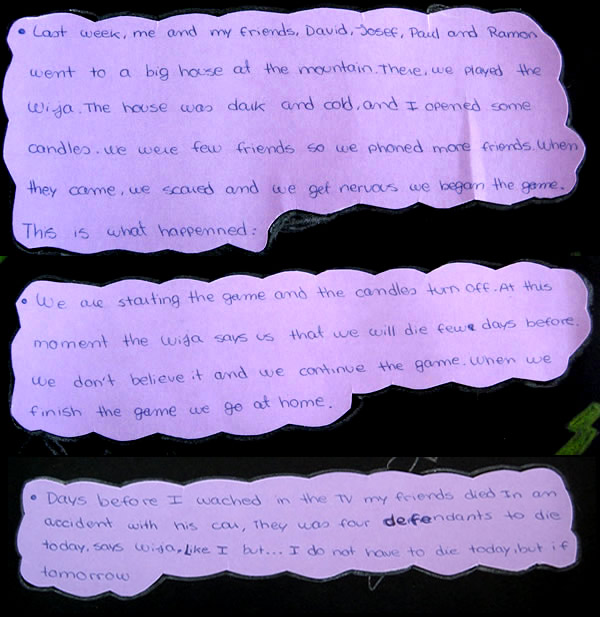 • Last week, me and my friends, David, Josef, Paul and Ramon
went to a big house at the mountain. There, we played the
Wija. The house was dark and cold, and I opened some
candles. We were few friends so we phoned more friends. When
they came, we scared and we get nervous we began the game.
This is what happenned:
• We are starting the game and the candles turn off. At this
moment the Wija says us that we will die few days before.
We don't believe it and we continue the game. When we
finish the game we go at home.
• Days before I wached in the TV my friends died In an
accident with his car, They was four defendants to die
today, says Wija, Like I but... I do not have to die today, but if
tomorrow